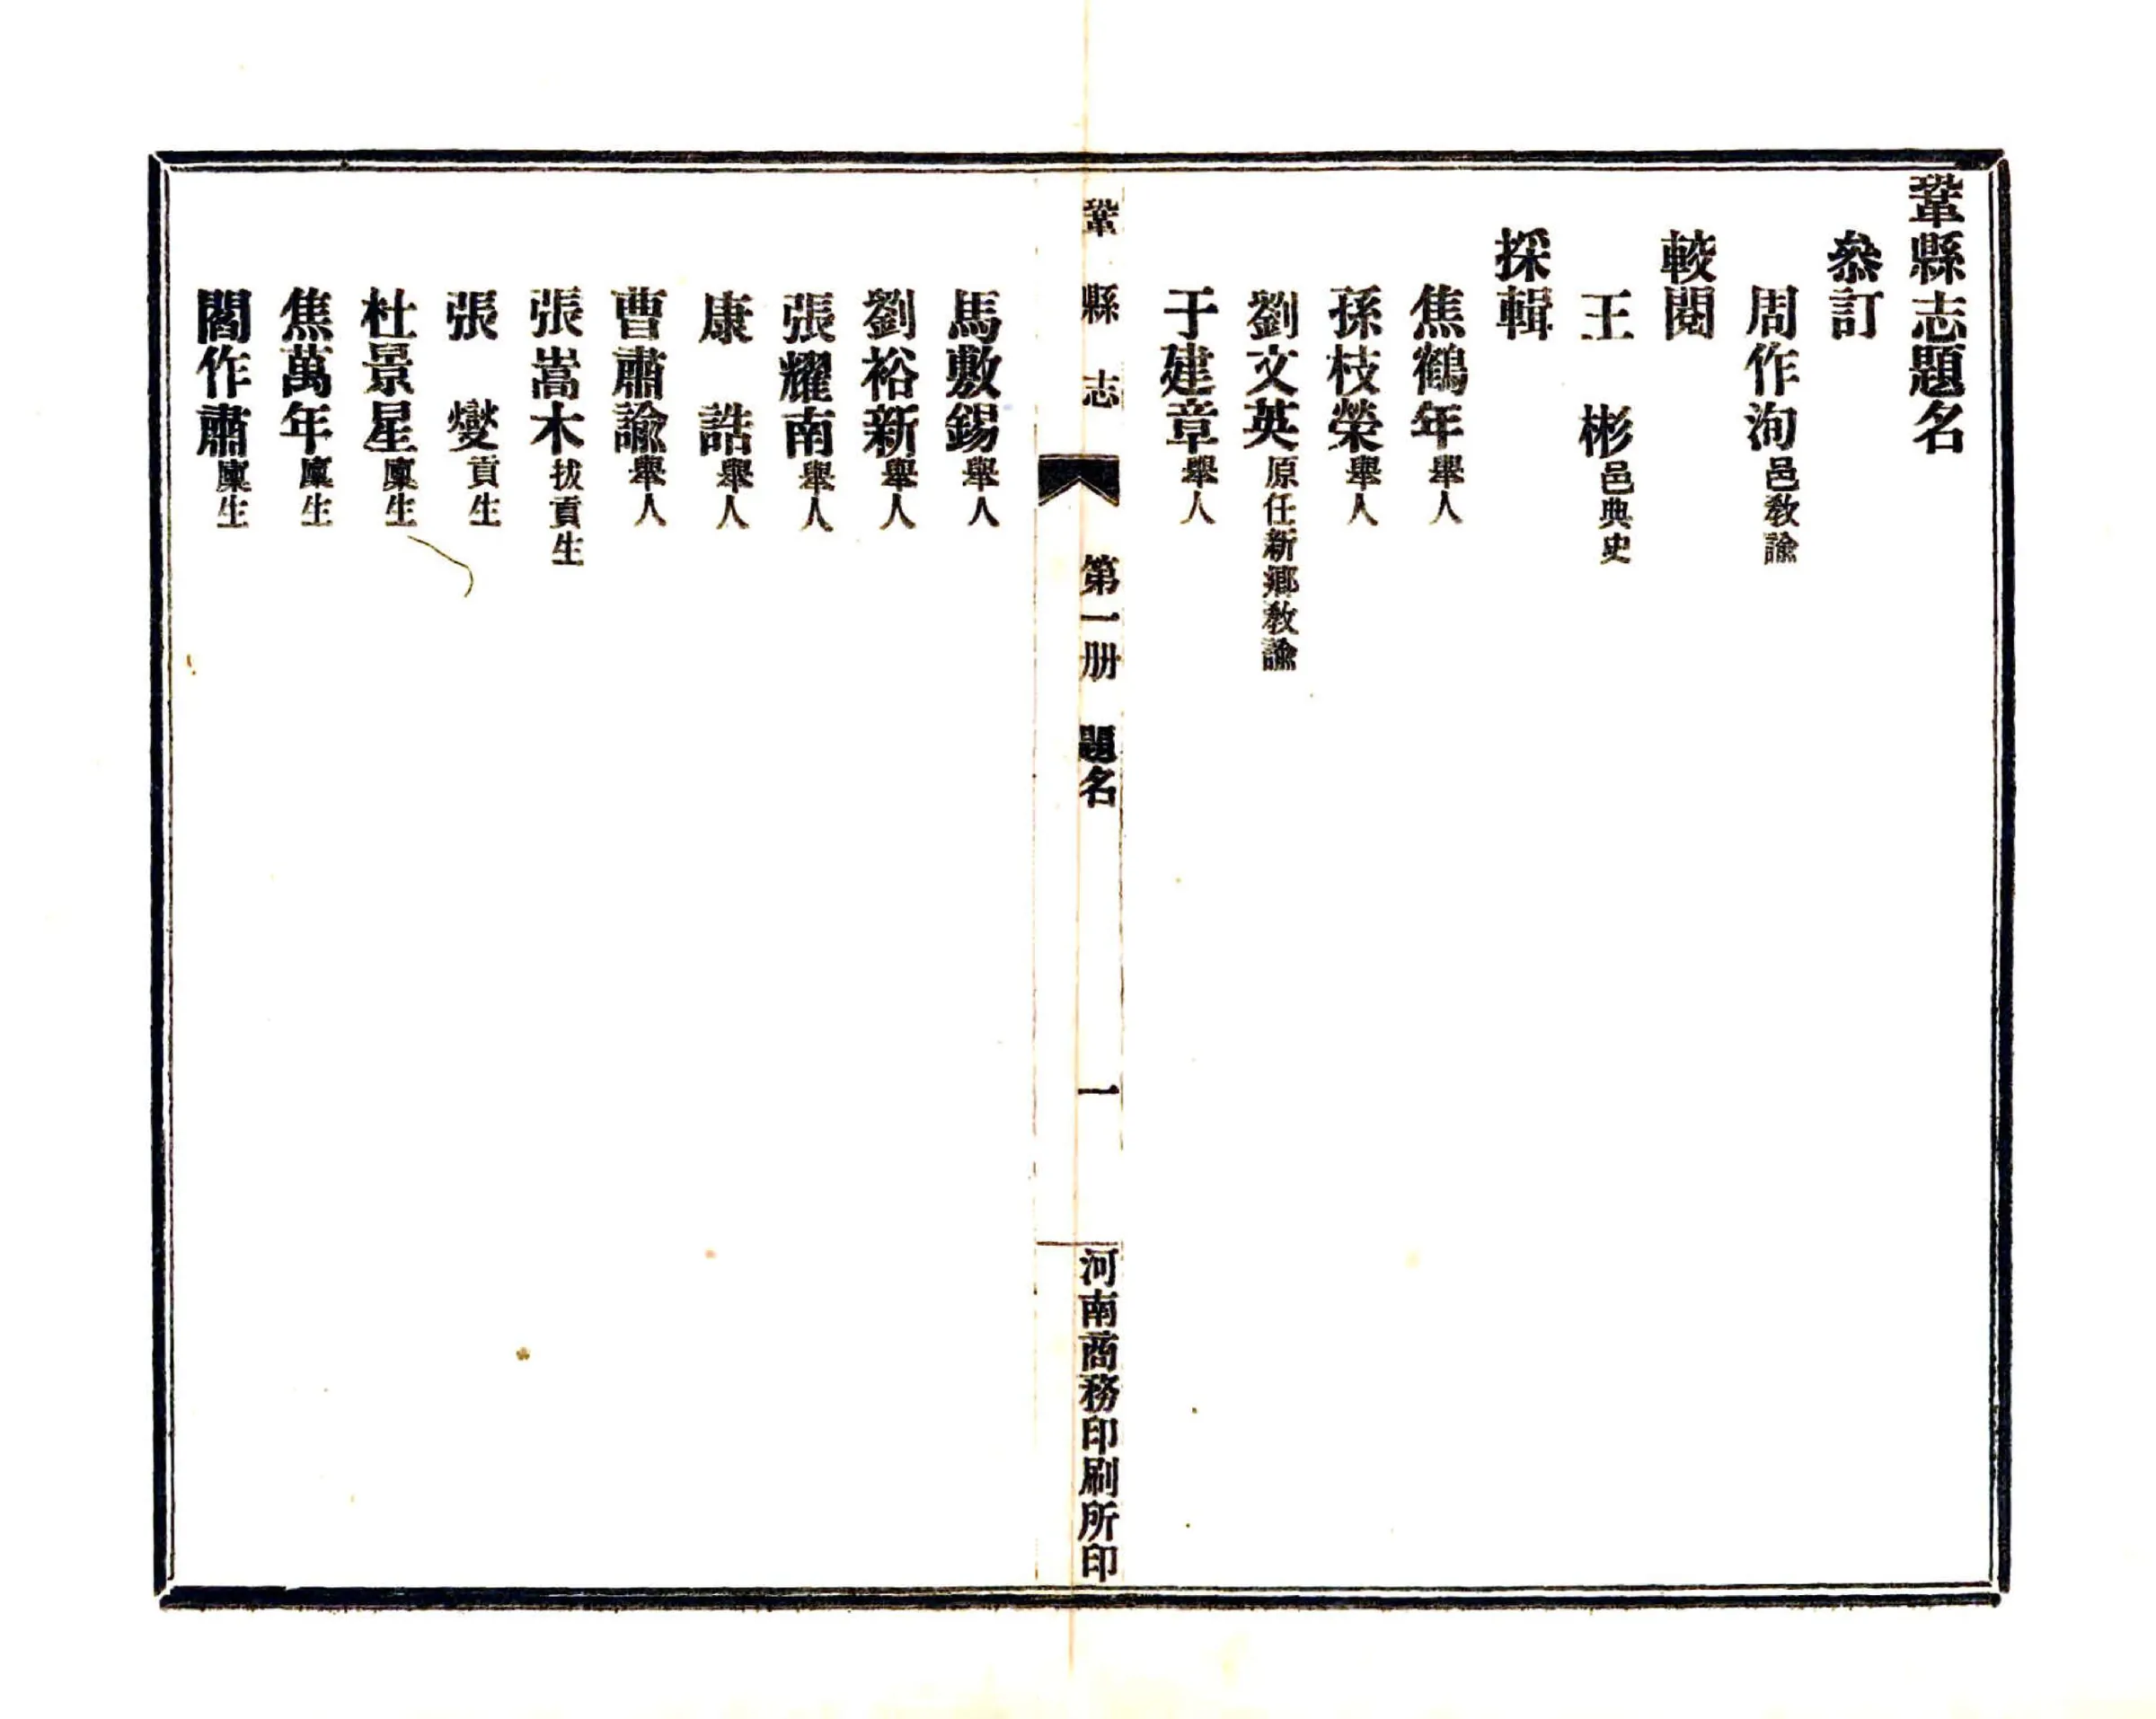 鞏縣志題名
叅訂
周作洵邑教諭
較閱
王 彬邑典史
採輯
焦鶴年舉人
孫枝榮舉人
劉文英原任新鄉教諭
于建章舉人
鞏縣志 第一册 題名 一 河南商務印刷所印
馬敷錫舉人
劉裕新舉人
張耀南舉人
康 誥舉人
曹肅諭舉人
張嵩木拔貢生
張 燮貢生
杜景星廩生
焦萬年廩生
閻作肅廩生